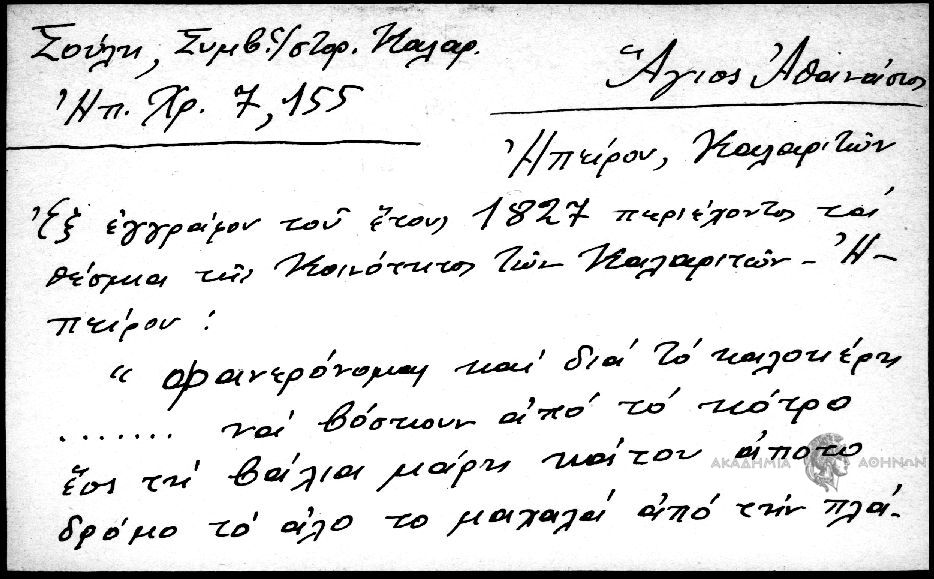 Σούλη, Συμβ. ἱστορ. Καλαρ.
Ἠπ. Χρ. 7, 155
Ἅγιος Ἀθανάσιος
Ἠπείρου, Καλαριτῶν
Ἐξ ἐγγράφου τοῦ ἔτους 1827 περιέχοντος τά
θέσμια τῆς Κοινότητος τῶν Καλαριτῶν - Ἠ-
πείρου :
" Φανερόνομαι καί διά τό καλοκέρη
....... νά βόσκουν ἀπό τό κότρο
ἔος τή βάλια μάρη κάτου ἀπότο
δρόμο τό ἀλο το μαχαλά ἀπό τήν πλά-
ΑΚΑΔΗΜΙΑ ΑΘΗΝΩΝ